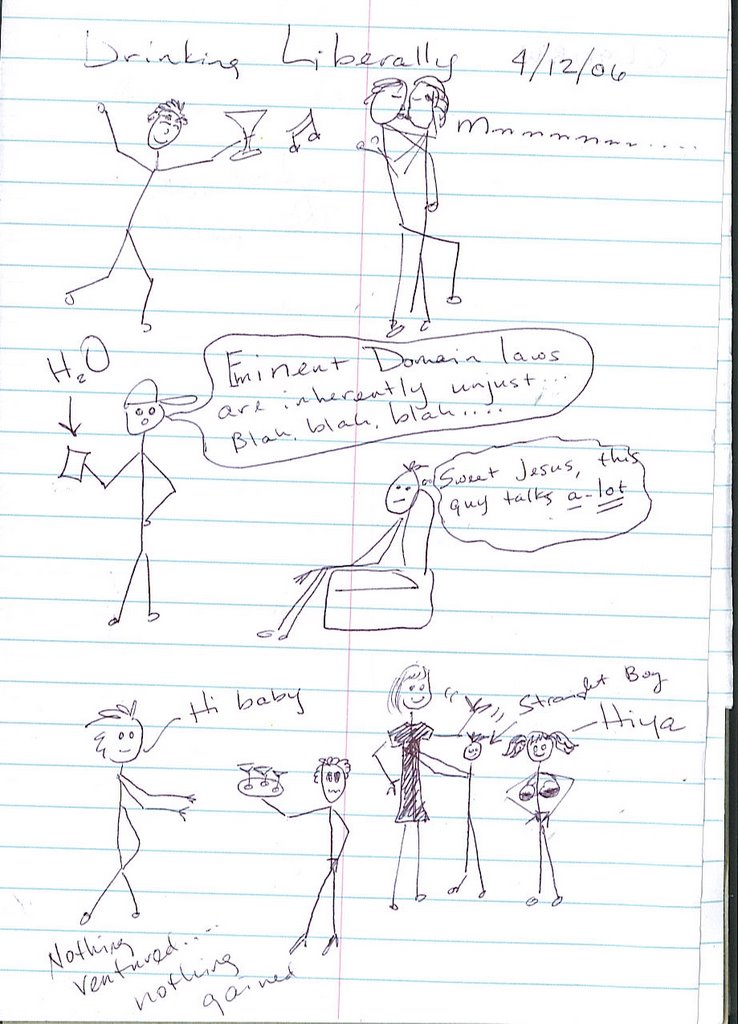 Drinking Liberally 4/12/06
Mnnnnnnn.....
H2O
Eminent Domain laws
are inherently unjust...
Blah, blah, blah.....
Sweet Jesus, this
guy talks a lot
Hi baby
Straight Boy
Hiya
Nothing
ventured.....
nothing
gained